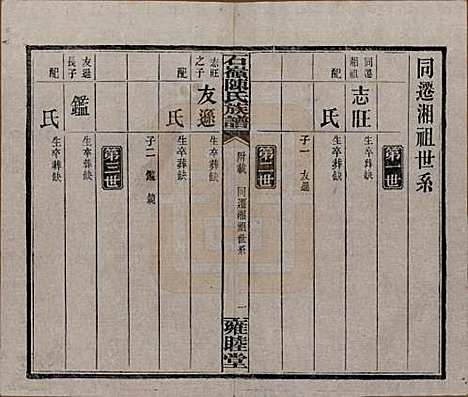 同遷湘祖世系
第一世
同遷湘祖
志旺
生卒葬缺
配
氏
生卒葬缺
子一 友遜
第二世
石嶺陳氏族譜
附載 同遷湘祖世系
一
雍睦堂
志旺之子
友遜
生卒葬缺
配
氏
生卒葬缺
子二 鑑 鏡
第三世
友遜長子
鑑
生卒葬缺
配
氏
生卒葬缺